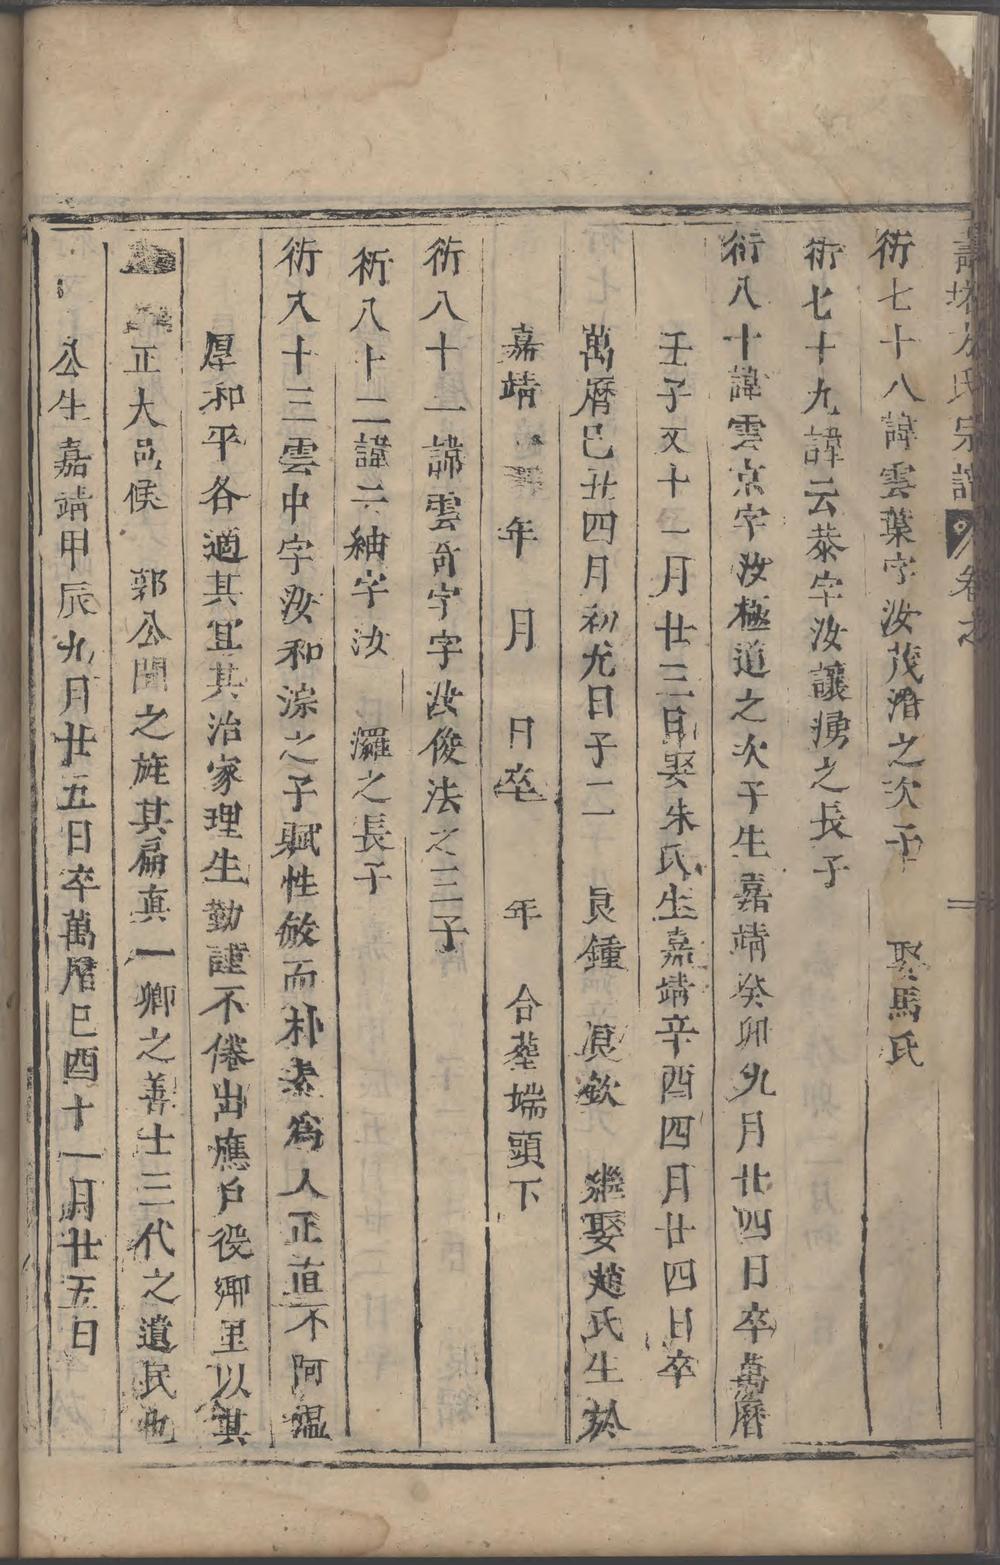 宗譜 卷之
衍七十八諱雲葉字汝茂濳之次子 娶馬氏
衍七十九諱云恭字汝讓湧之長子
衍八十諱雲京字汝極道之次子生嘉靖癸卯九月廿四日卒萬曆
壬子又十一月廿三日娶朱氏生嘉靖辛酉四月廿四日卒
萬曆巳丑四月初九日子二 良鍾 良欽 繼娶趙氏生於
嘉靖 年 月 日卒 年 合塟端頭下
衍八十一諱雲奇字字汝俊法之三子
衍八十二諱云紬字汝 灑之長子
衍八十三雲中字汝和淙之子賦性敏而朴素為人正直不阿溫
厚和平各適其宜其治家理生勤謹不倦出應戶役鄉里以其
正大邑候 郭公聞之旌其扁真一鄉之善士三代之遺民也
公生嘉靖甲辰九月廿五日卒萬曆巳酉十一月廿五日